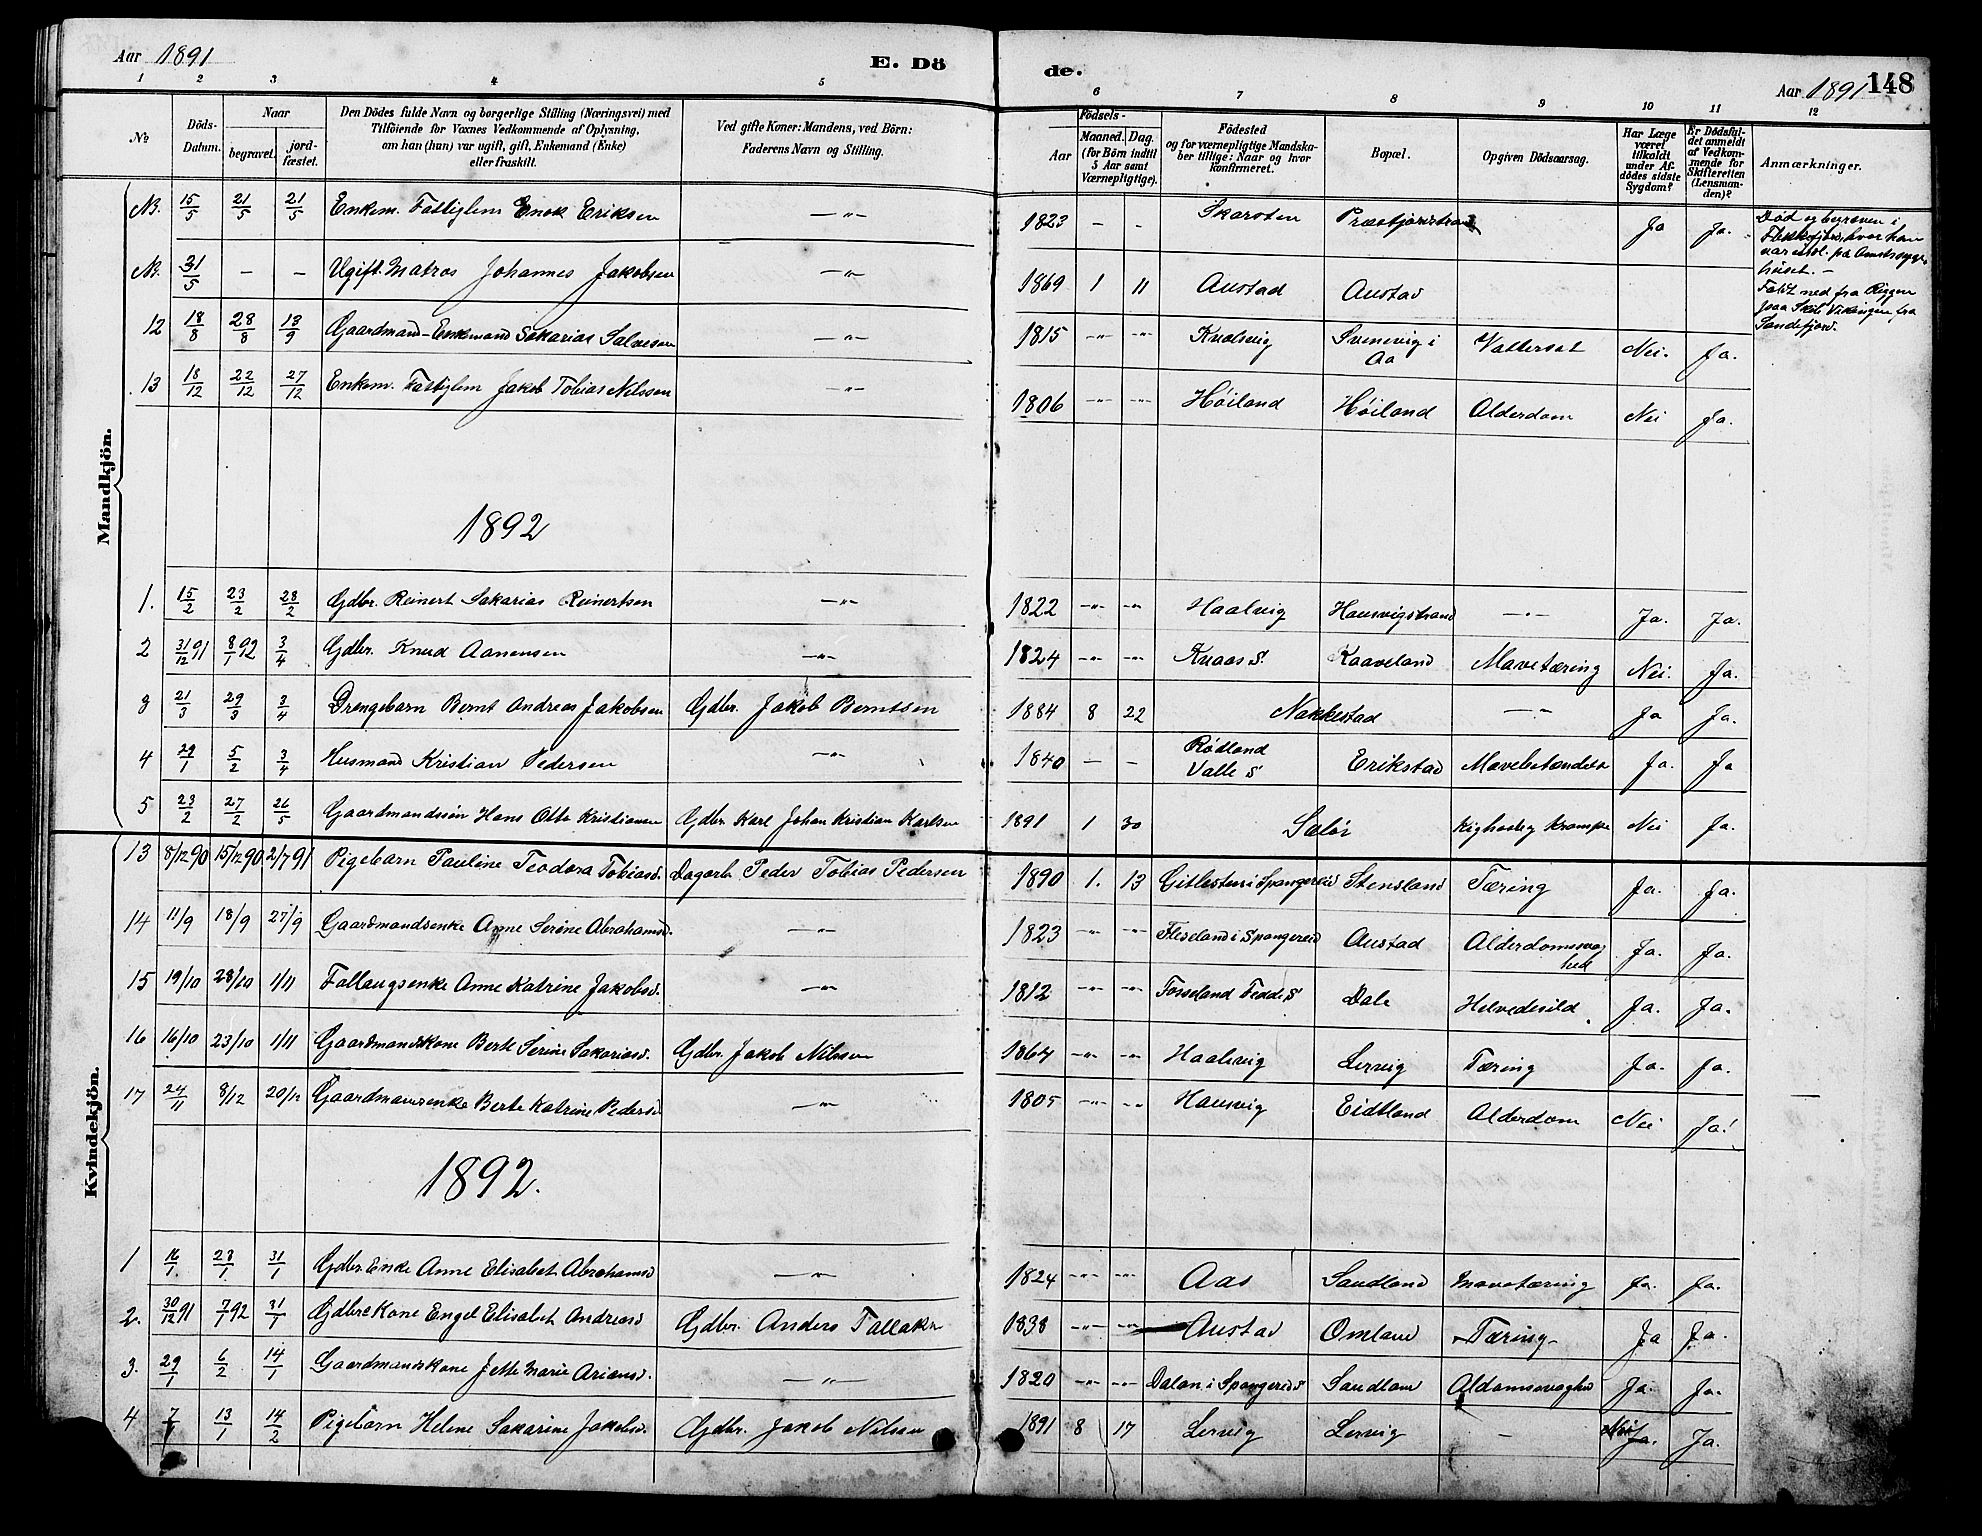 Aar 1891 E. Dö de. Aar 1891 148
1 2 3 4 5 6 7 8 9 10 11 12
№
Döds-Datum.
Naar
begravet.
jord-fæstet.
Den Dödes fulde Navn og borgerlige Stilling (Næringsvei) med
Tilföiende for Voxnes Vedkommende af Oplysning,
om han (hun) var ugift, gift, Enkemand (Enke)
eller fraskilt.
Ved gifte Koner: Mandens, ved Börn:
Faderens Navn og Stilling.
Födsels-
Aar
Maaned. Dag.
(for Börn indtil
5 Aar samt
Værnepligtige).
Födested
og for værnepligtige Mandska-
ber tillige: Naar og hvor
konfirmeret.
Bopæl.
Opgiven Dödsaarsag.
Har Læge
været
tilkaldt
under Af-
dödes sidste
Sygdom?
Er Dödsful-
det anmeldt
af Vedkom-
mende for
Skifteretten
(Lensman-
den)?
Anmærkninger.
Mandkjön.
N. 15/5 21/5 21/5 Enkem. Fattiglem Enok Eriksen -"- 1823 - - Skarsten Ja Ja.
Död og begraven i
Flekkefjord, hvor han
var indl. på Amtssyge-
huset. -
N. 31/5 - - Ugift. Matros Johannes Jakobsen -"- 1869 1 11 Austad Austad
Faldt ned fra Riggen
paa Skib Vikingen fra
Sandefjord.
12 18/8 28/8 13/9 Gaardmand-Enkemand Sakarias Salvesen -"- 1815 -"- -"- Kvalsvig Svenevig i Aa Vattersot Nei. Ja.
13 18/12 22/12 27/12 Enkem. Fattiglem Jakob Tobias Nilssen -"- 1806 -"- -"- Höiland Höiland Alderdom Nei Ja.
1892
1. 15/2 23/2 28/2 Gdbr. Reinert Sakarias Reinertsen -"- 1822 -"- -"- Haalvig Hausvigstrand -"- Ja. Ja.
2 31/12 91 8/1 92 3/4 Gdbr. Knud Aanensen -"- 1824 -"- -"- Knaas S. Kaaveland Mavetæring Nei. Ja.
3 21/3 29/3 3/4 Drengebarn Bernt Andreas Jakobsen Gdbr. Jakob Berntssen 1884 8 22 Nakkestad -"- Ja Ja.
4 29/1 5/2 3/4 Husmand Kristian Pedersen -"- 1840 - - Rödland Valle S Erikstad Mavebetændelse Ja. Ja
5 23/2 27/2 26/5 Gaardmandssön Hans Otto Kristiansen Gdbr. Karl Johan Kristian Karlsen 1891 1 30 Salör Kighoste Krampe Nei Ja.
Kvindekjön.
13 8/12 90 15/12 90 2/7 91 Pigebarn Pauline Teodora Tobiasd. Dagarb. Peder Tobias Pedersen 1890 1. 13 Gitlesten i Spangereid Stensland Tæring Ja. Ja.
14 11/9 18/9 27/9 Gaardmandsenke Anne Serine Abrahamsd. -"- 1823 -"- -"- Fliseland i Spangereid Austad Alderdomssvaghed Ja. Ja.
15 19/10 28/10 1/11 Fattaugsenke Anne Katrine Jakobsd. -"- 1812 -"- -"- Fosseland Fedde S Dale Helvedesild Ja. Ja.
16 16/10 23/10 1/11 Gaardmandskone Berte Serine Sakariasd. Gdbr. Jakob Nilssen 1864 -"- -"- Haalevig Lervig Tæring Ja. Ja.
17 24/11 8/12 20/12 Gaardmandsenke Berte Katrine Pedersd -"- 1805 -"- -"- Hausvig Eidtland Alderdom Nei Ja!
1892.
1 16/1 23/1 31/1 Gdbr. Enke Anne Elisabet Abrahamsd -"- 1824 -"- -"- Aas Sandland Mavetæring Ja. Ja.
2. 30/12 91 7/1 92 31/1 Gdbr Kone Engel Elisabet Andreasd Gdbr. Anders Tallaksen 1838 -"- -"- Austad Omland Tæring Ja Ja.
3. 29/1 6/2 14/1 Gaardmandskone Jette Marie Ariansd. -"- 1820 -"- -"- Dalan i Spangereid S Sandland Aldomssvaghed Ja. Ja.
4 7/1 13/1 14/2 Pigebarn Helene Sakarine Jakobsd. Gdbr. Jakob Nilsen 1891 8 17 Lervig Lervig - Ja. Ja.